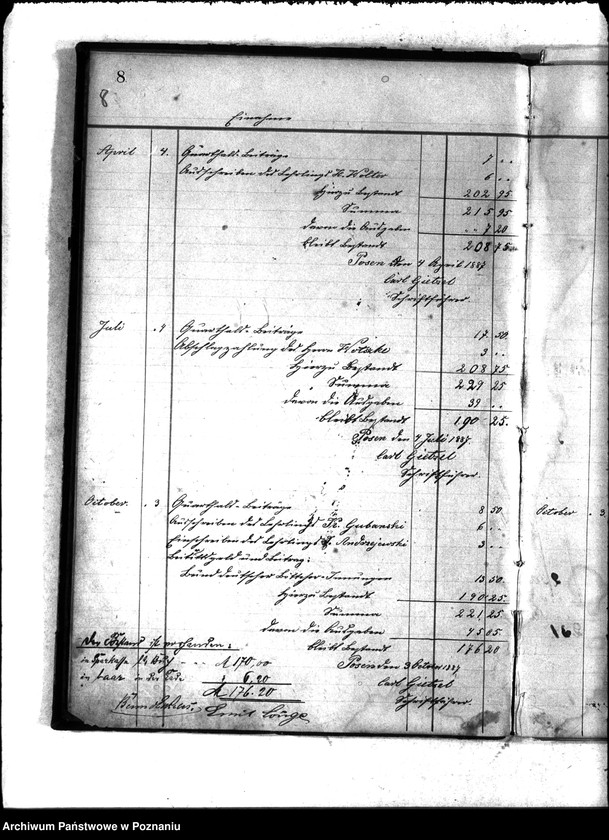 8
8
Einnahme
April 4. Quartals-Beiträge 7 ..
Ausschreiben des Lehrlings K. Keller 6 ..
Hierzu Bestand 202 95
Summa 215 95
davon die Ausgaben 7 20
bleibt Bestand 208 75
Posen den 4 April 1887
Carl Gietzel
Schriftführer.
Juli 4 Quartals-Beiträge 17. 50.
Abschlagzahlung des Herrn 3 ..
Hierzu Bestand 208 75
Summa 229 25
davon die Ausgaben 39 ..
bleibt Bestand 190 25.
Posen den 4 Juli 1887.
Carl Gietzel
Schriftführer.
October 3 Quartals-Beiträge 8 50.
Ausschreiben des Lehrlings St. Gubanski 6 ..
Einschreiben des Lehrlings Andrzejewski 3 ..
und Beitrag:
Bund deutscher Innungen 13 50.
Hierzu Bestand 190 25.
Summa 221 25
davon die Ausgaben 45 05.
bleibt Bestand 176 20
Posen den 3 October 1887
Carl Gietzel
Schriftführer.
Der Bestand ist vorhanden:
in Sparkasse M 170,00
in baar in der Lade 6.20
M 176.20
October 3
16
Archiwum Państwowe w Poznaniu